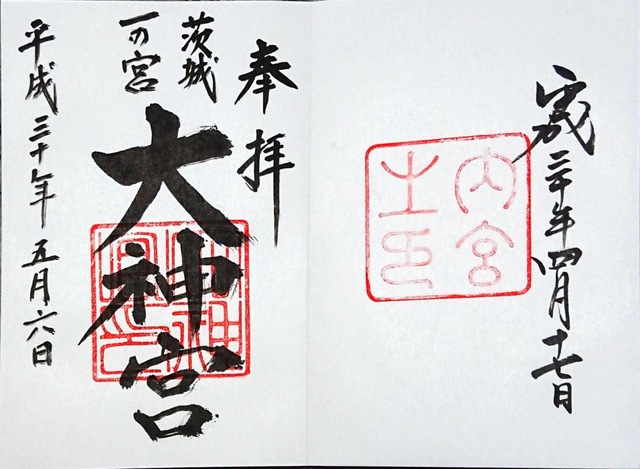 平成三十年四月十七日
内宮
之印
奉拝
茨城
一の宮
大神宮
平成三十年五月六日